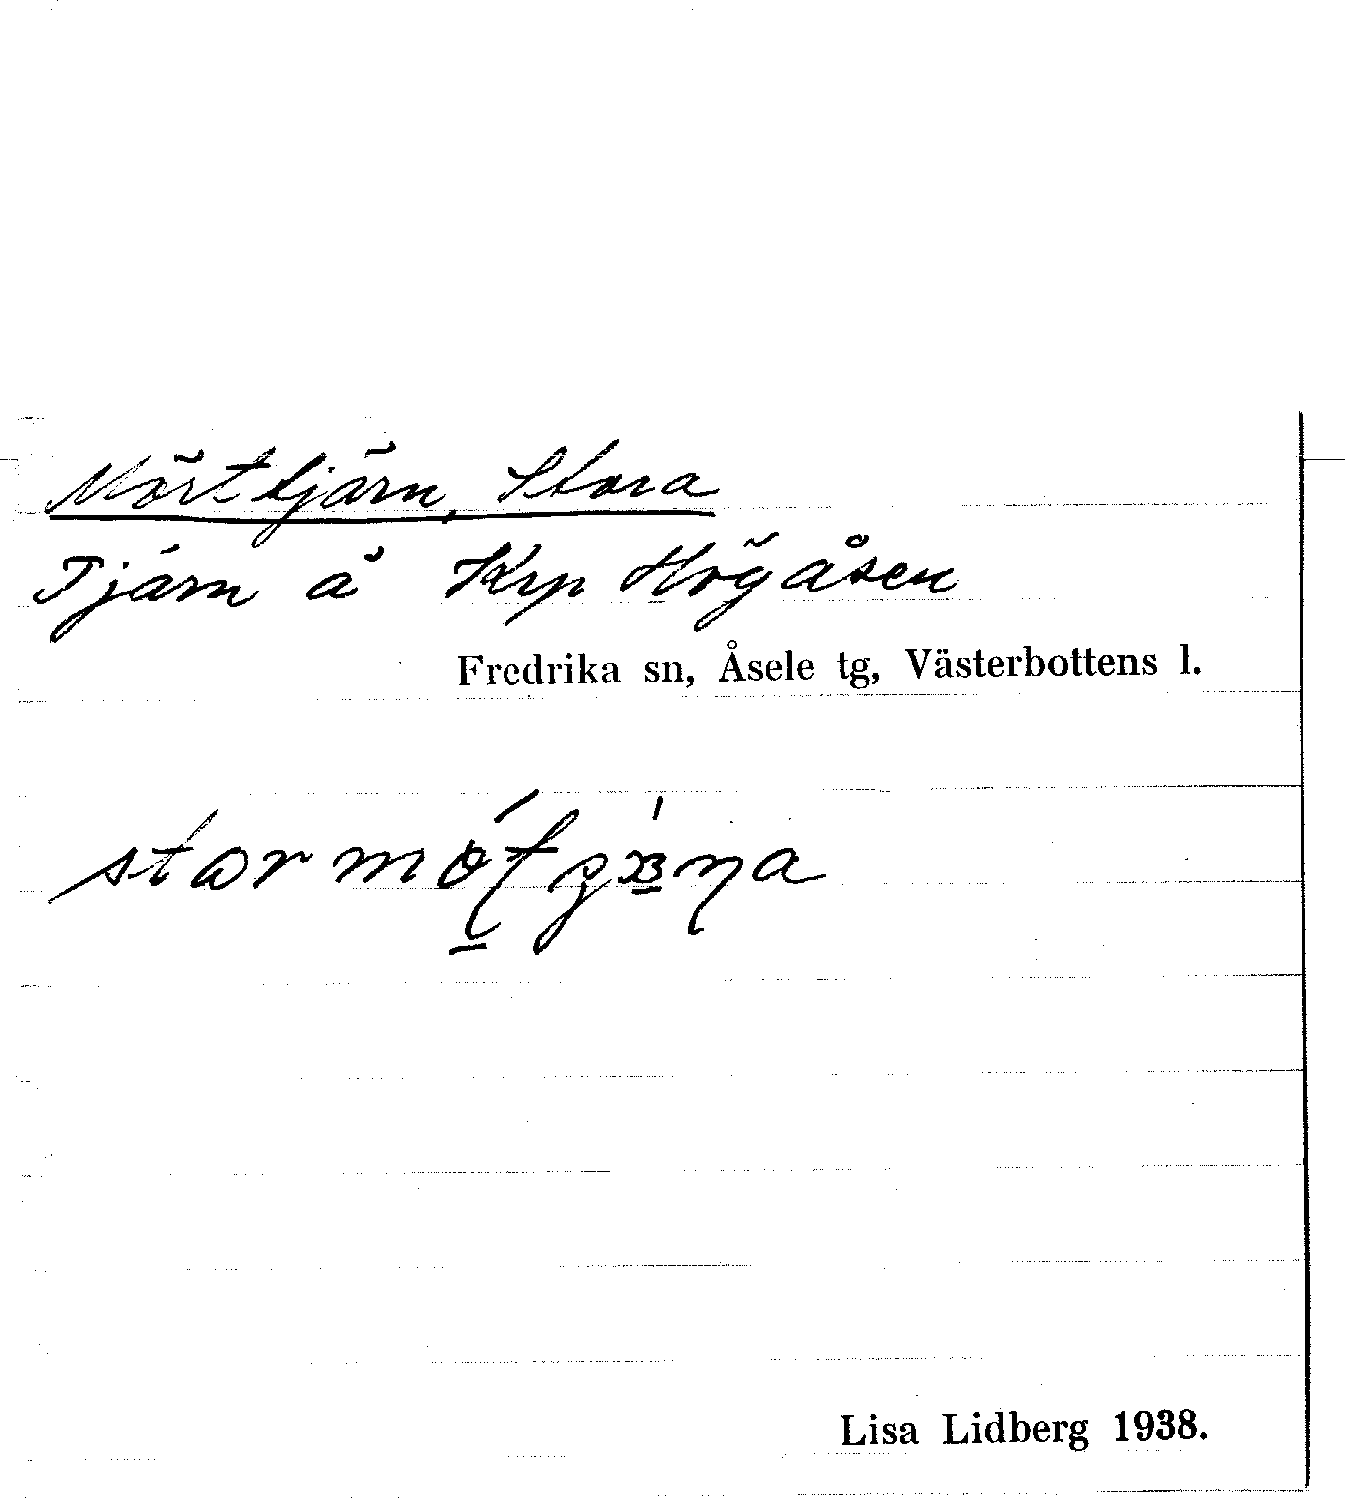 Mörttjärn, Stora
Tjärn å Krp Högåsen
Fredrika sn, Åsele tg, Västerbottens l.
Lisa Lidberg 1938.